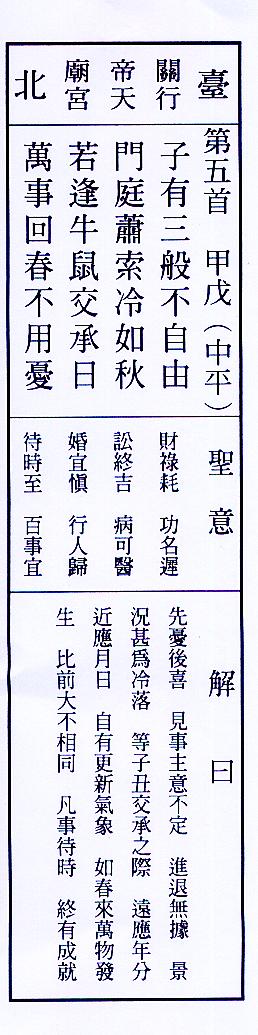 臺北
行天宮
關帝廟
第五首 甲戊(中平)
子有三般不自由
門庭蕭索冷如秋
若逢牛鼠交承日
萬事回春不用憂
聖意
財祿耗 功名遲
訟終吉 病可醫
婚宜慎 行人歸
待時至 百事宜
解曰
先憂後喜 見事主意不定 進退無據 景
況甚為冷落 等子丑交承之際 遠應年分
近應月日 自有更新氣象 如春來萬物發
生 比前大不相同 凡事待時 終有成就